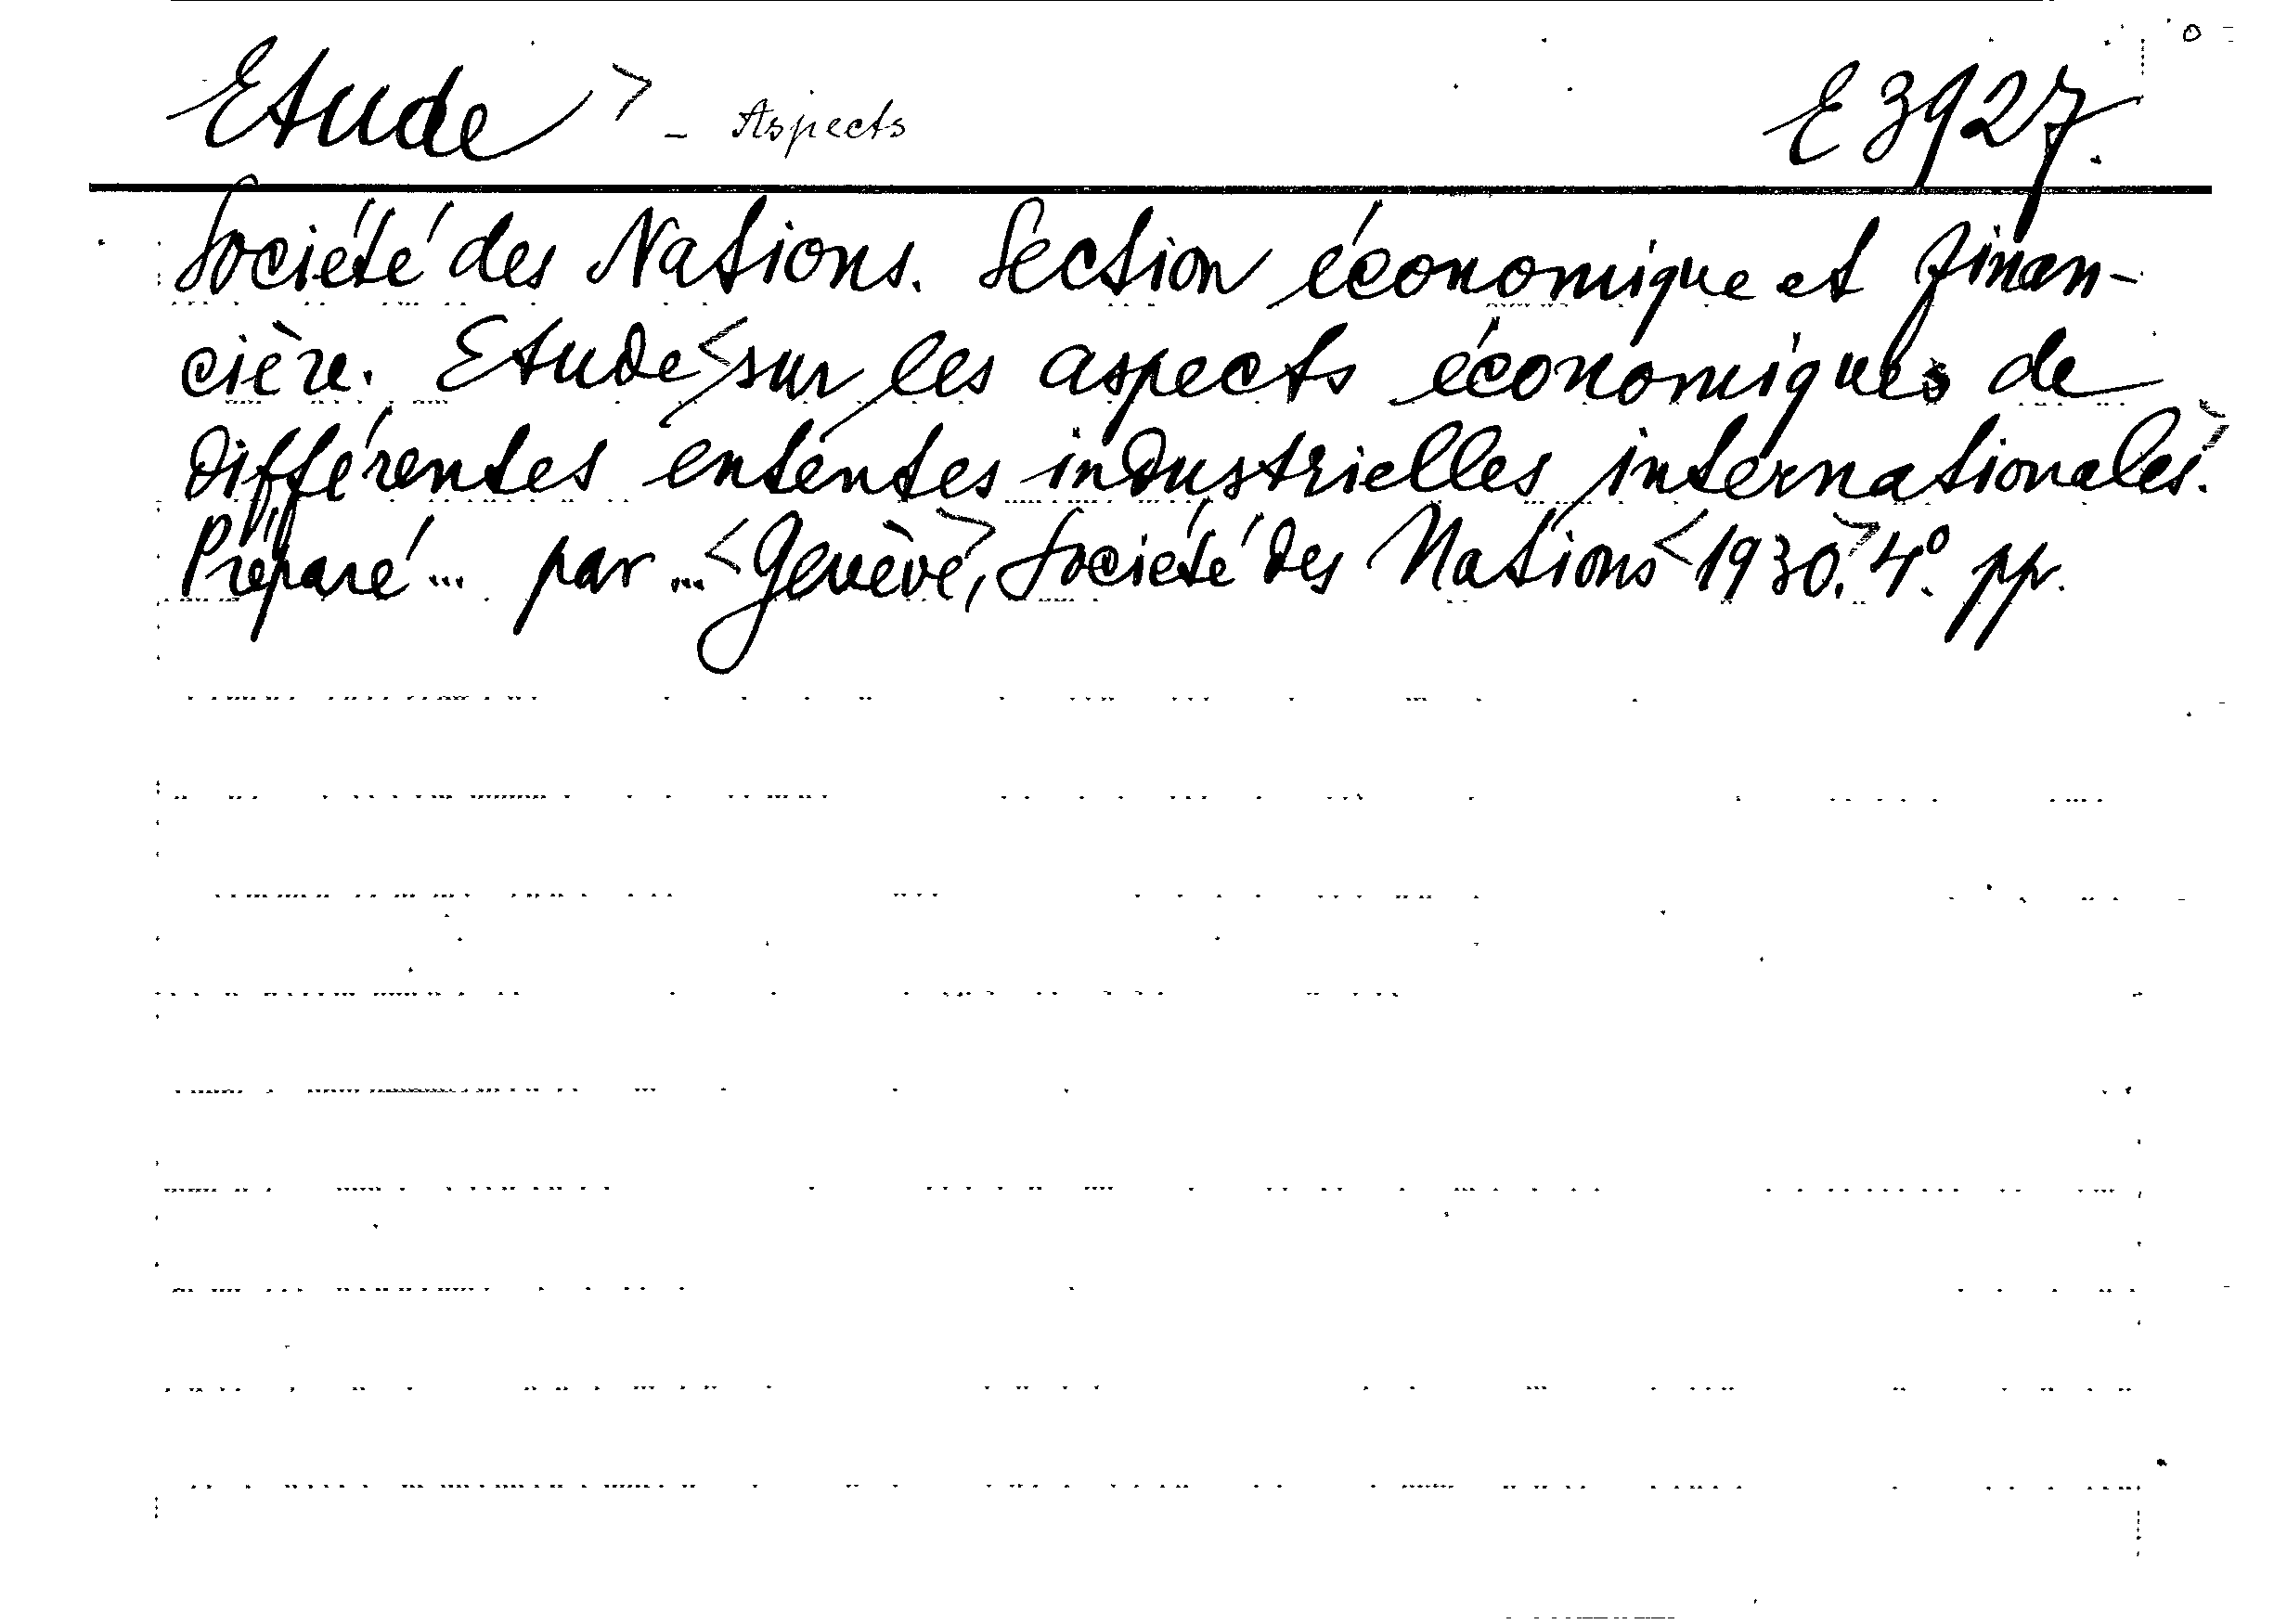 Etude > - Aspects E 3927.
Société des Nations. Section économique et finan-
cière. Etude < sur les aspects économiques de
différentes ententes industrielles internationales >.
Préparé ... par ... < Genève >, Société des Nations < 1930. > 4º. pp.